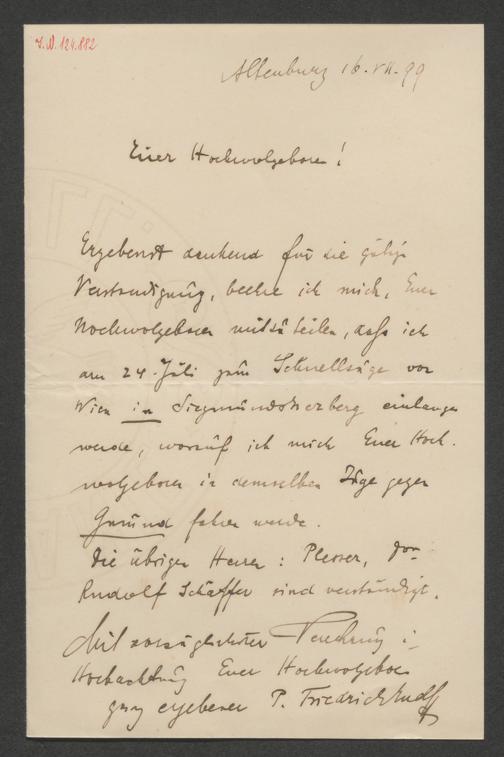 I.N. 124.882
Altenburg 16.VII.99
Euer Hochwolgeboren!
Ergebenst dankend für die gütige
Verständigung, beehre ich mich, Euer
Hochwolgeboren mitzuteilen, dass ich
am 24. Juli zum Schnellzuge von
Wien in Siegmundsherberg einlangen
werde, worauf ich mich Euer Hoch-
wolgeboren in demselben Zuge gegen
Gmünd fahren werde.
Die übrigen Herren: Plesser,
Rudolf Schäffer sind verständigt.
Mit vorzüglichster Verehrung
Hochachtung Euer Hochwolgeboren
ganz ergebener P. Friedrich Endl